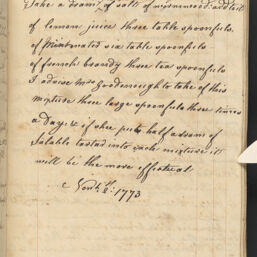 Take a dram of salt of wormwood add to it
of lemmon juice three table spoonfuls
of Mintwater six table spoonfuls
of french brandy three tea spoonfuls
I advise Mrs Goodenough to take of this
mixture three large spoonfuls three times
a Day & if she puts half a dram of
Soluble tartar into each mixture it
will be the more effectual
1773